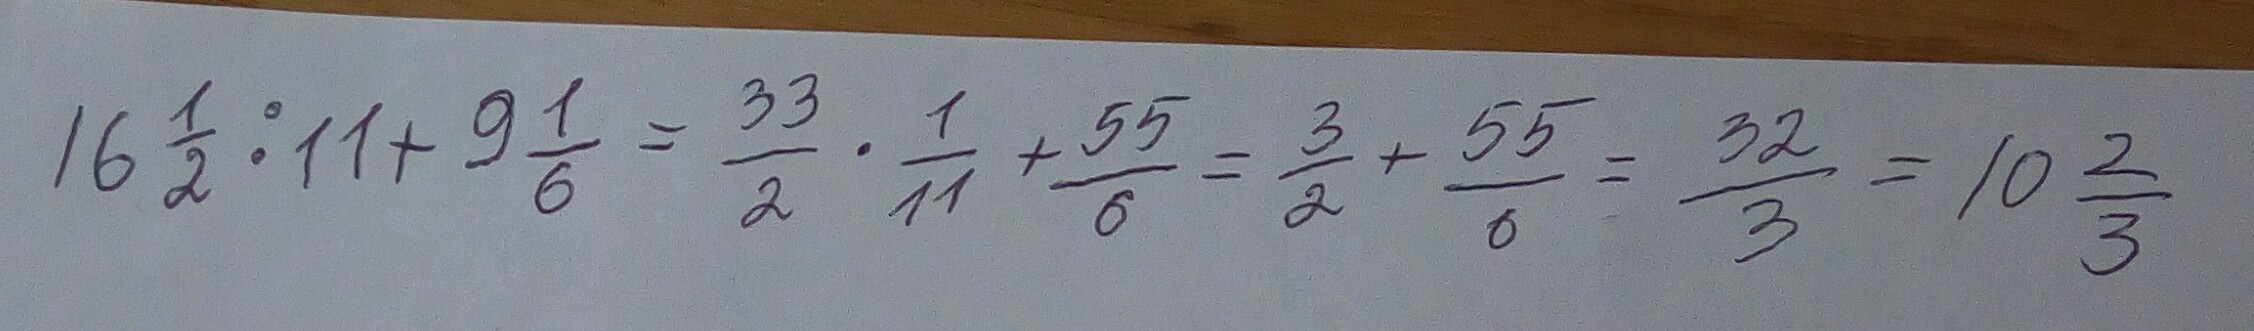 16 1/2 : 11 + 9 1/6 = 33/2 · 1/11 + 55/6 = 3/2 + 55/6 = 32/3 = 10 2/3